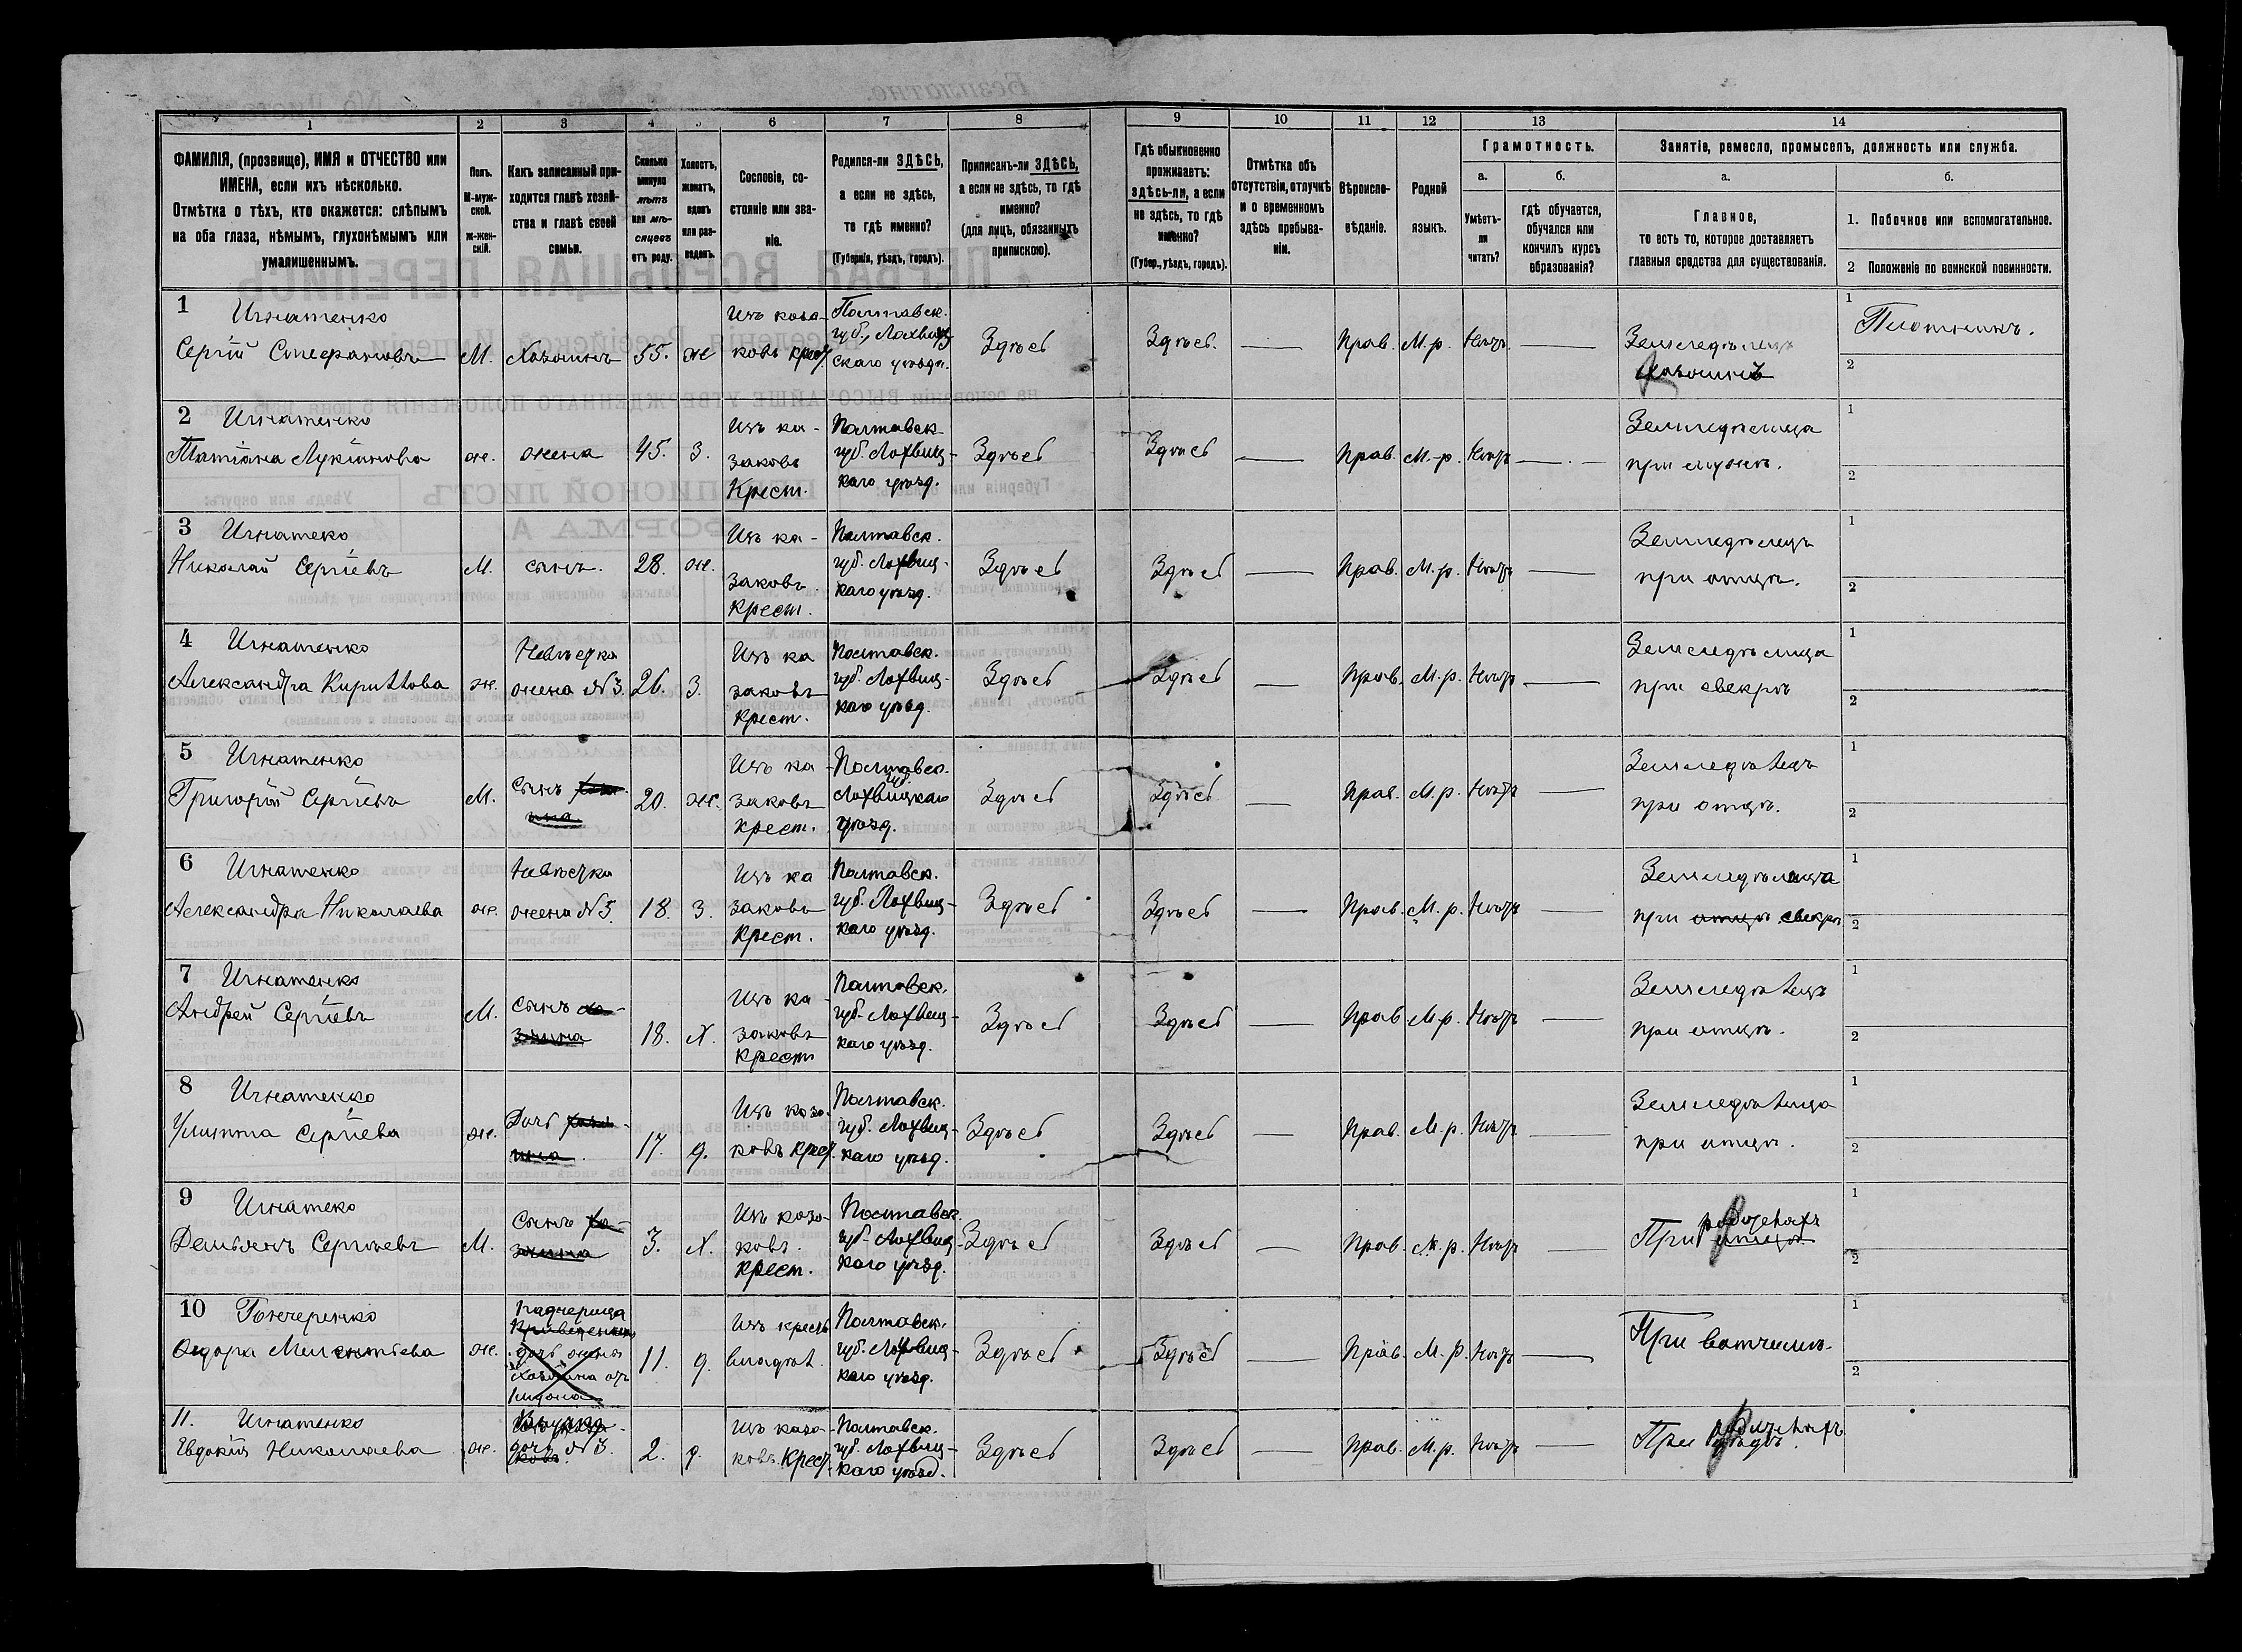 1 2 3 4 5 6 7 8 9 10 11 12 13 14
ФАМИЛІЯ, (прозвище), ИМЯ и ОТЧЕСТВО или
ИМЕНА, если ихъ нѣсколько.
Отмѣтка о тѣхъ, кто окажется: слѣпымъ
на оба глаза, нѣмымъ, глухонѣмымъ или
умалишеннымъ.
Полъ.
М-муж-
ской.
ж-жен-
скій.
Какъ записанный при-
ходится главѣ хозяй-
ства и главѣ своей
семьи.
Сколько
минуло
лѣтъ
или мѣ-
сяцевъ
отъ роду.
Холостъ,
женатъ,
вдовъ
или раз-
веденъ.
Сословіе, со-
стояніе или зва-
ніе.
Родился-ли ЗДѢСЬ,
а если не здѣсь,
то гдѣ именно?
(Губернія, уѣздъ, городъ).
Приписанъ-ли ЗДѢСЬ,
а если не здѣсь, то гдѣ
именно?
(для лицъ, обязанныхъ
припискою).
Гдѣ обыкновенно
проживаетъ:
здѣсь-ли, а если
не здѣсь, то гдѣ
именно?
(Губер., уѣздъ, городъ).
Отмѣтка объ
отсутствіи, отлучкѣ
и о временномъ
здѣсь пребыва-
ніи.
Вѣроиспо-
вѣданіе.
Родной
языкъ.
Грамотность.
а.
Умѣетъ-
ли
читать?
б.
гдѣ обучается,
обучался или
кончилъ курсъ
образованія?
Занятіе, ремесло, промыселъ, должность или служба.
а.
Главное,
то есть то, которое доставляетъ
главныя средства для существованія.
б.
1. Побочное или вспомогательное.
2 Положеніе по воинской повинности.
1 Игнатенко
Сергій Стефановъ М. Хозяинъ 55. же
Изъ коза-
ковъ крест.
Полтавск.
губ., Лохвиц-
скаго уѣзда.
Здѣсь Здѣсь. — Прав. М.р. Нѣтъ. —
Земледѣлецъ
Хозяинъ
1 Плотникъ.
2
2 Игнатенко
Татіана Лукіянова же. жена 45. З.
Изъ ка-
заковъ
Крест.
Полтавск
губ. Лохвиц-
каго уѣзд.
Здѣсь Здѣсь — Прав. М.р. Нѣтъ —
Земледѣлица
при мужѣ.
1
2
3 Игнатеко
Николай Сергіевъ М. сынъ. 28. же.
Изъ ка-
заковъ
Крест.
Полтавск.
губ. Лохвиц-
каго уѣзд.
Здѣсь Здѣсь — Прав. М.р. Нѣтъ —
Земледѣлецъ
при отцѣ.
1
2
4 Игнатенко
Александра Кириллова же.
Невѣстка
жена №3. 26. З.
Изъ ка
заковъ
Крест.
Полтавск.
губ. Лохвиц-
каго уѣзд.
Здѣсь Здѣсь — Прав. М.р. Нѣтъ —
Земледѣлица
при свекрѣ
1
2
5 Игнатенко
Григорій Сергіевъ М. Сынъ 20. же.
Изъ ка-
заковъ
крест.
Полтавск.
губ.
Лохвицкаго
уѣзд.
Здѣсь Здѣсь — Прав. М.р. Нѣтъ —
Земледѣлецъ
при отцѣ.
1
2
6 Игнатенко
Александра Николаева же.
Невѣстка
жена №5. 18. З.
Изъ ка
заковъ
Крест.
Полтавск.
губ. Лохвиц-
каго уѣзд.
Здѣсь Здѣсь — Прав. М.р. Нѣтъ —
Земледѣлица
при отцѣ свекрѣ
1
2
7 Игнатенко
Андрей Сергіевъ М.
Сынъ хо-
зяина 18. Х.
Изъ ка-
заковъ
Крест
Полтавск.
губ. Лохвиц-
каго уѣзд.
Здѣсь Здѣсь — Прав М.р. Нѣтъ —
Земледѣлецъ
при отцѣ.
1
2
8 Игнатенко
Улиппа Сергіева же. Дочь 17. д.
Изъ коза-
ковъ Крест.
Полтавск.
губ. Лохвиц-
каго уѣзд.
Здѣсь Здѣсь — Прав. М.р. Нѣтъ —
Земледѣлица
при отцѣ.
1
2
9 Игнатеко
Демьянъ Сергѣевъ М.
Сынъ хо-
зяина 3. Х.
Изъ коза-
ковъ.
крест.
Полтавск.
губ. Лохвиц-
каго уѣзд.
Здѣсь Здѣсь — Прав. М.р. Нѣтъ —
родителяхъ
При отцѣ
1
2
10 Гончеренко
Федора Мелентіева же.
Падчерица
дочь жены
Хозяина отъ
11. д.
Изъ крестъ
владѣл.
Полтавск.
губ. Лохвиц-
каго уѣзд.
Здѣсь Здѣсь — Прав. М.р. Нѣтъ —
При вотчимѣ.
1
2
11. Игнатенко
Евдокія Николаева же.
Внучка
дочь №3. 2. д.
Изъ каза-
ковъ Крест.
Полтавск.
губ. Лохвиц-
каго уѣзд.
Здѣсь Здѣсь — Прав. М.р. Нѣтъ —
При родителяхъ